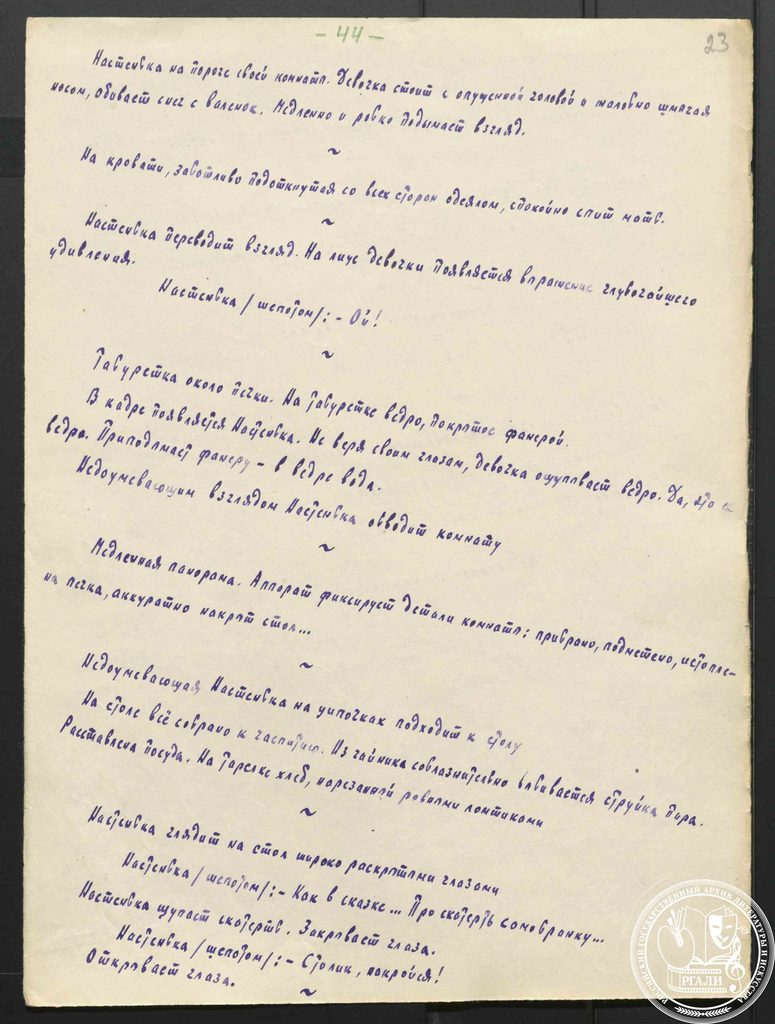 - 44 -
23
Настенька на пороге своей комнаты. Девочка стоит с опущенной головой и жалобно шмыгая
носом, обивает снег с валенок. Медленно и робко подымает взгляд.
~
На кровати, заботливо подоткнутая со всех сторон одеялом, спокойно спит мать.
~
Настенька переводит взгляд. На лице девочки появляется выражение глубочайшего
удивления.
Настенька /шепотом/: - Ой!
~
Табуретка около печки. На табуретке ведро, покрытое фанерой.
В кадре появляется Настенька. Не веря своим глазам, девочка ощупывает ведро. Да, это
ведро. Приподымает фанеру - в ведре вода.
Недоумевающим взглядом Настенька обводит комнату
~
Медленная панорама. Аппарат фиксирует детали комнаты: прибрано, подметено, истопле-
на печка, аккуратно накрыт стол...
~
Недоумевающая Настенька на цыпочках подходит к столу
На столе всё собрано к чаепитию. Из чайника соблазнительно выбивается струйка пара.
Расставлена посуда. На тарелке хлеб, нарезанный ровными ломтиками
~
Настенька глядит на стол широко раскрытыми глазами
Настенька /шепотом/: - Как в сказке... Про скатерть самобранку...
Настенька щупает скатерть. Закрывает глаза.
Настенька /шепотом/: - Столик, накройся!
Открывает глаза.
~
РОССИЙСКИЙ ГОСУДАРСТВЕННЫЙ АРХИВ ЛИТЕРАТУРЫ И ИСКУССТВА
РГАЛИ